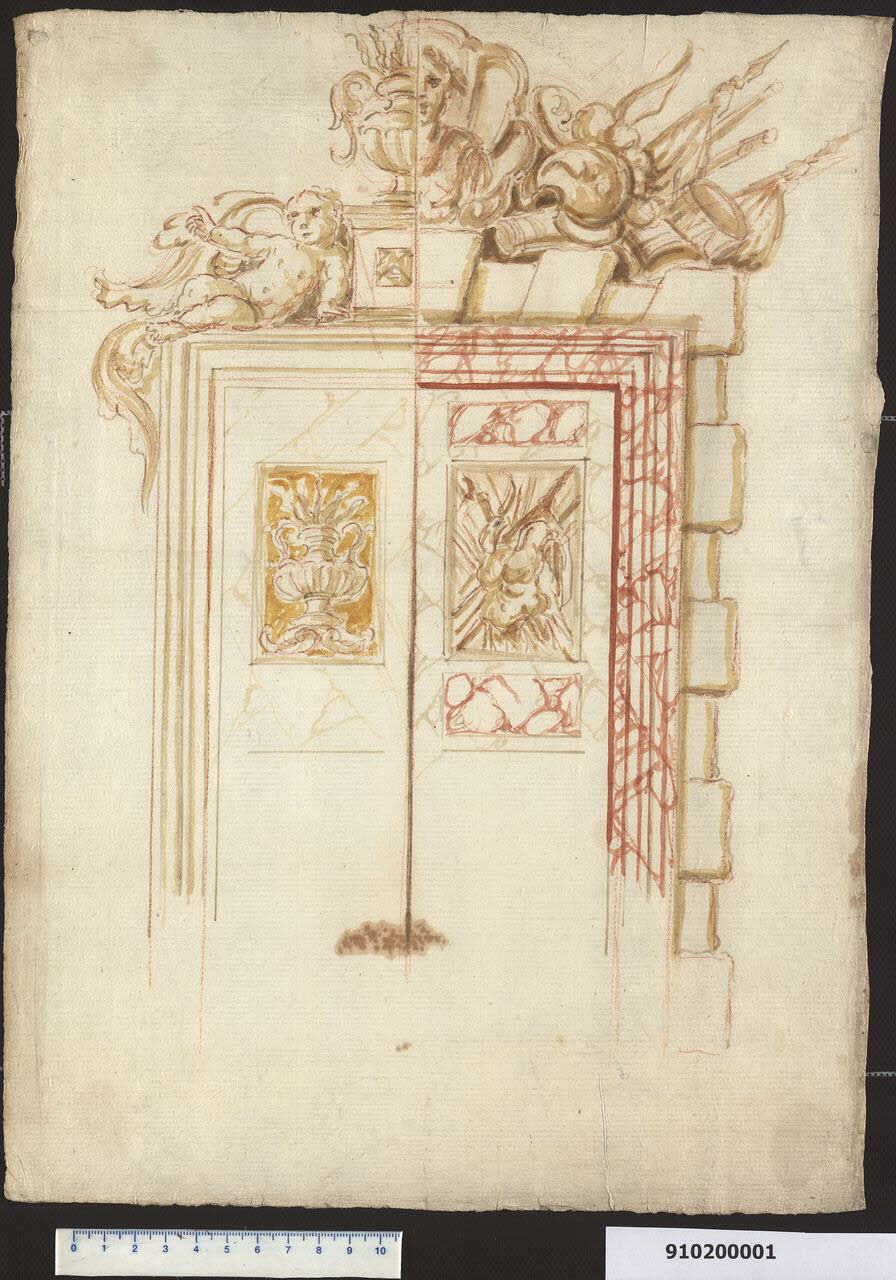 0 1 2 3 4 5 6 7 8 9 10
910200001